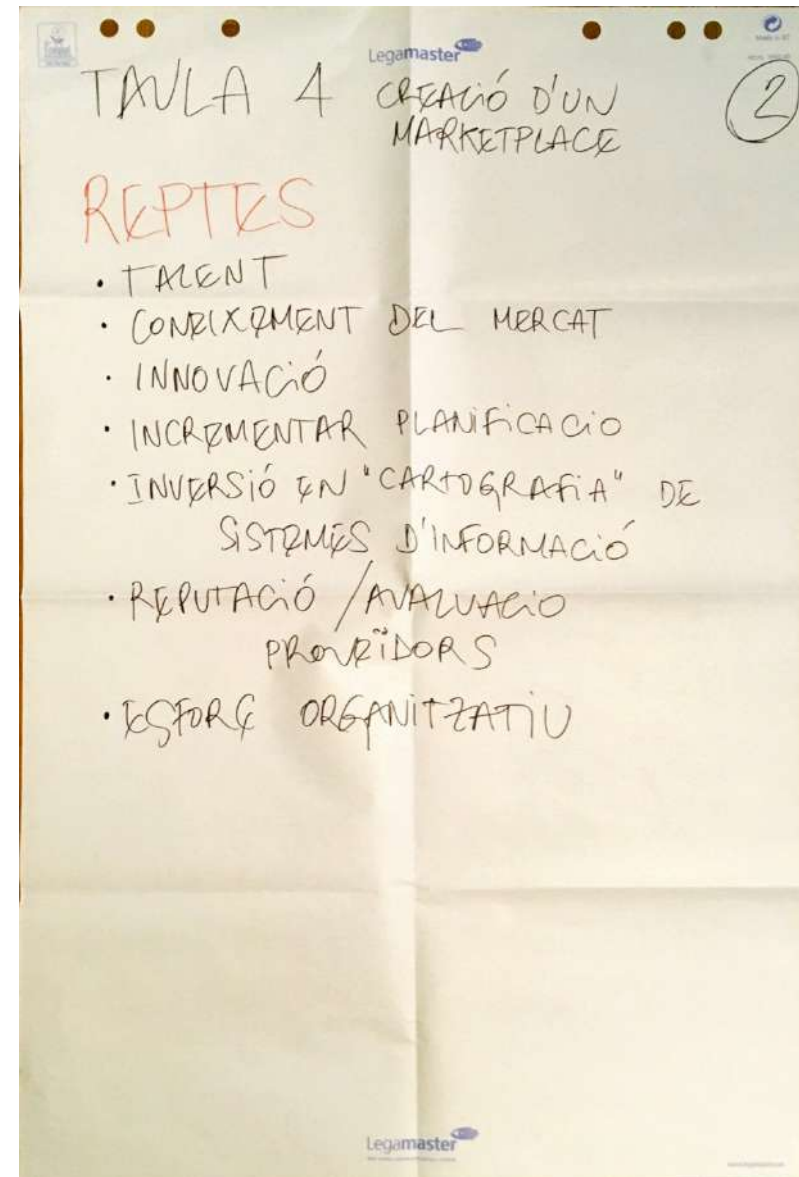 Legamaster
TAULA 4 CREACIÓ D'UN
MARKETPLACE
2
REPTES
· TALENT
· CONEIXEMENT DEL MERCAT
· INNOVACIÓ
· INCREMENTAR PLANIFICACIO
· INVERSIÓ EN "CARTOGRAFIA" DE
SISTEMES D'INFORMACIÓ
· REPUTACIÓ / AVALUACIO
PROVEÏDORS
· ESFORÇ ORGANITZATIU
Legamaster